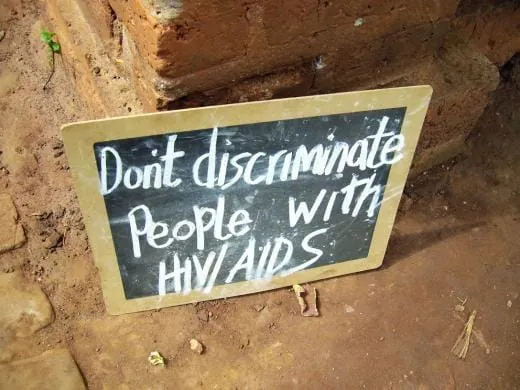 Don't discriminate
People with
HIV/AIDS